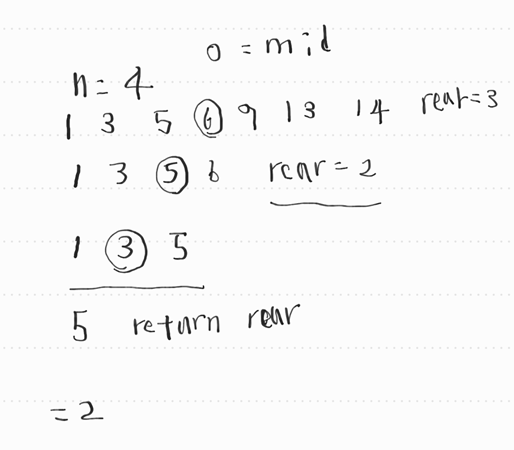 ○ = mid
n = 4
1 3 5 ⑥ 9 13 14 rear=3
1 3 ⑤ 6 rear = 2
1 ③ 5
5 return rear
= 2